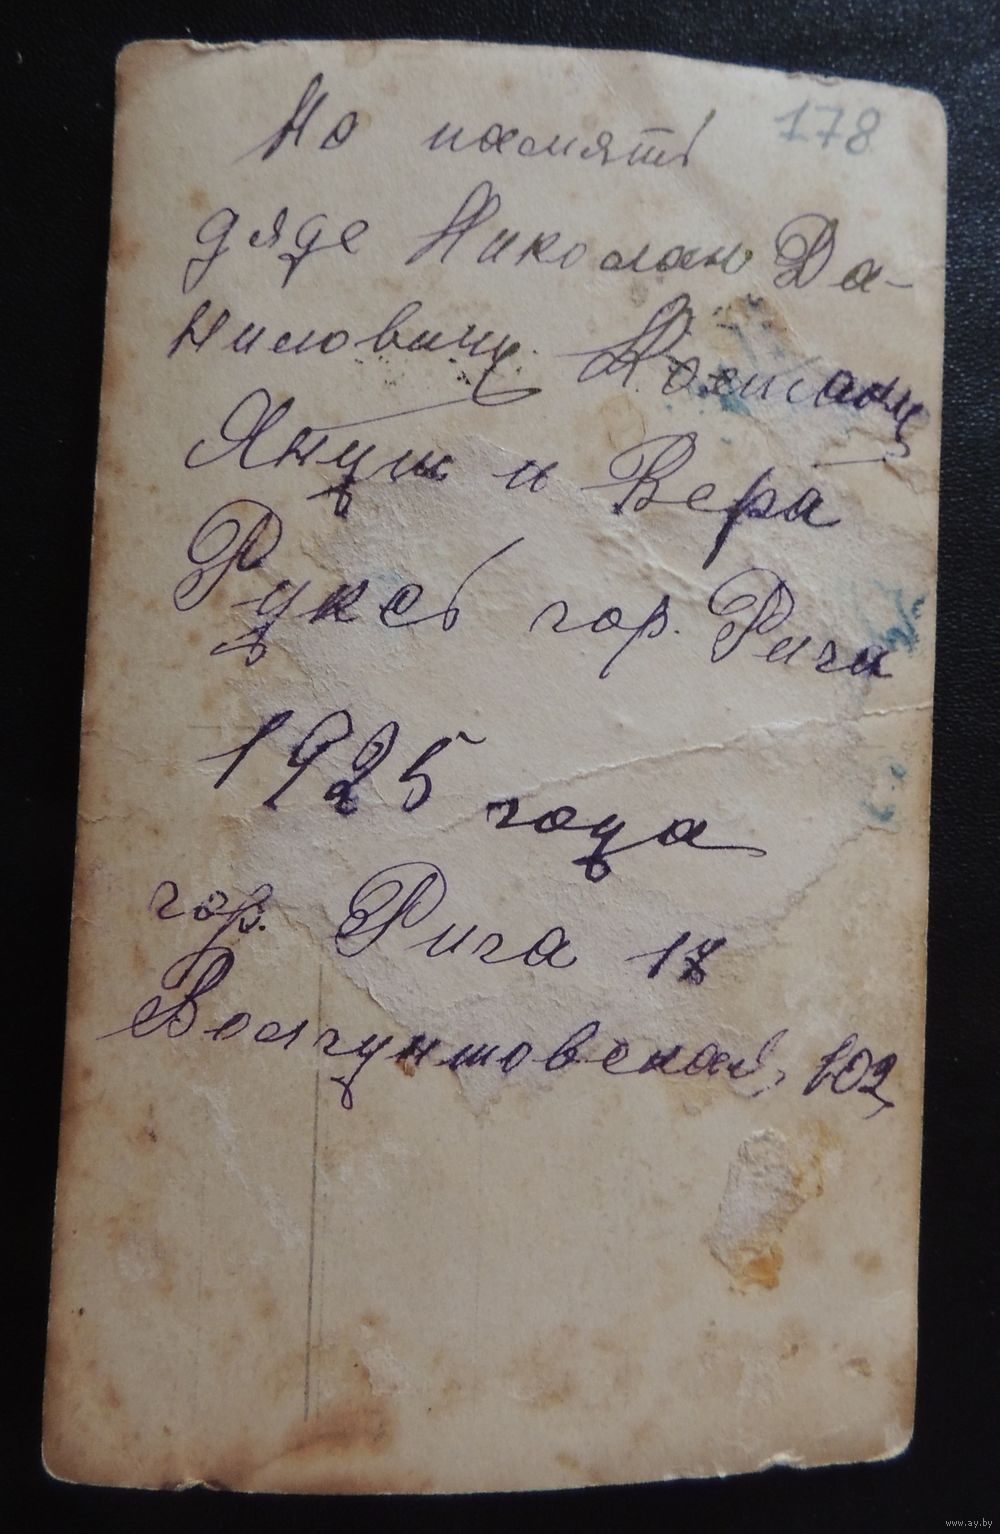 На память 178
дяде Николаю Да-
ниловичу
Януш и Вера
Руксь гор. Рига
1925 года
гор. Рига 17
102
www.ay.by